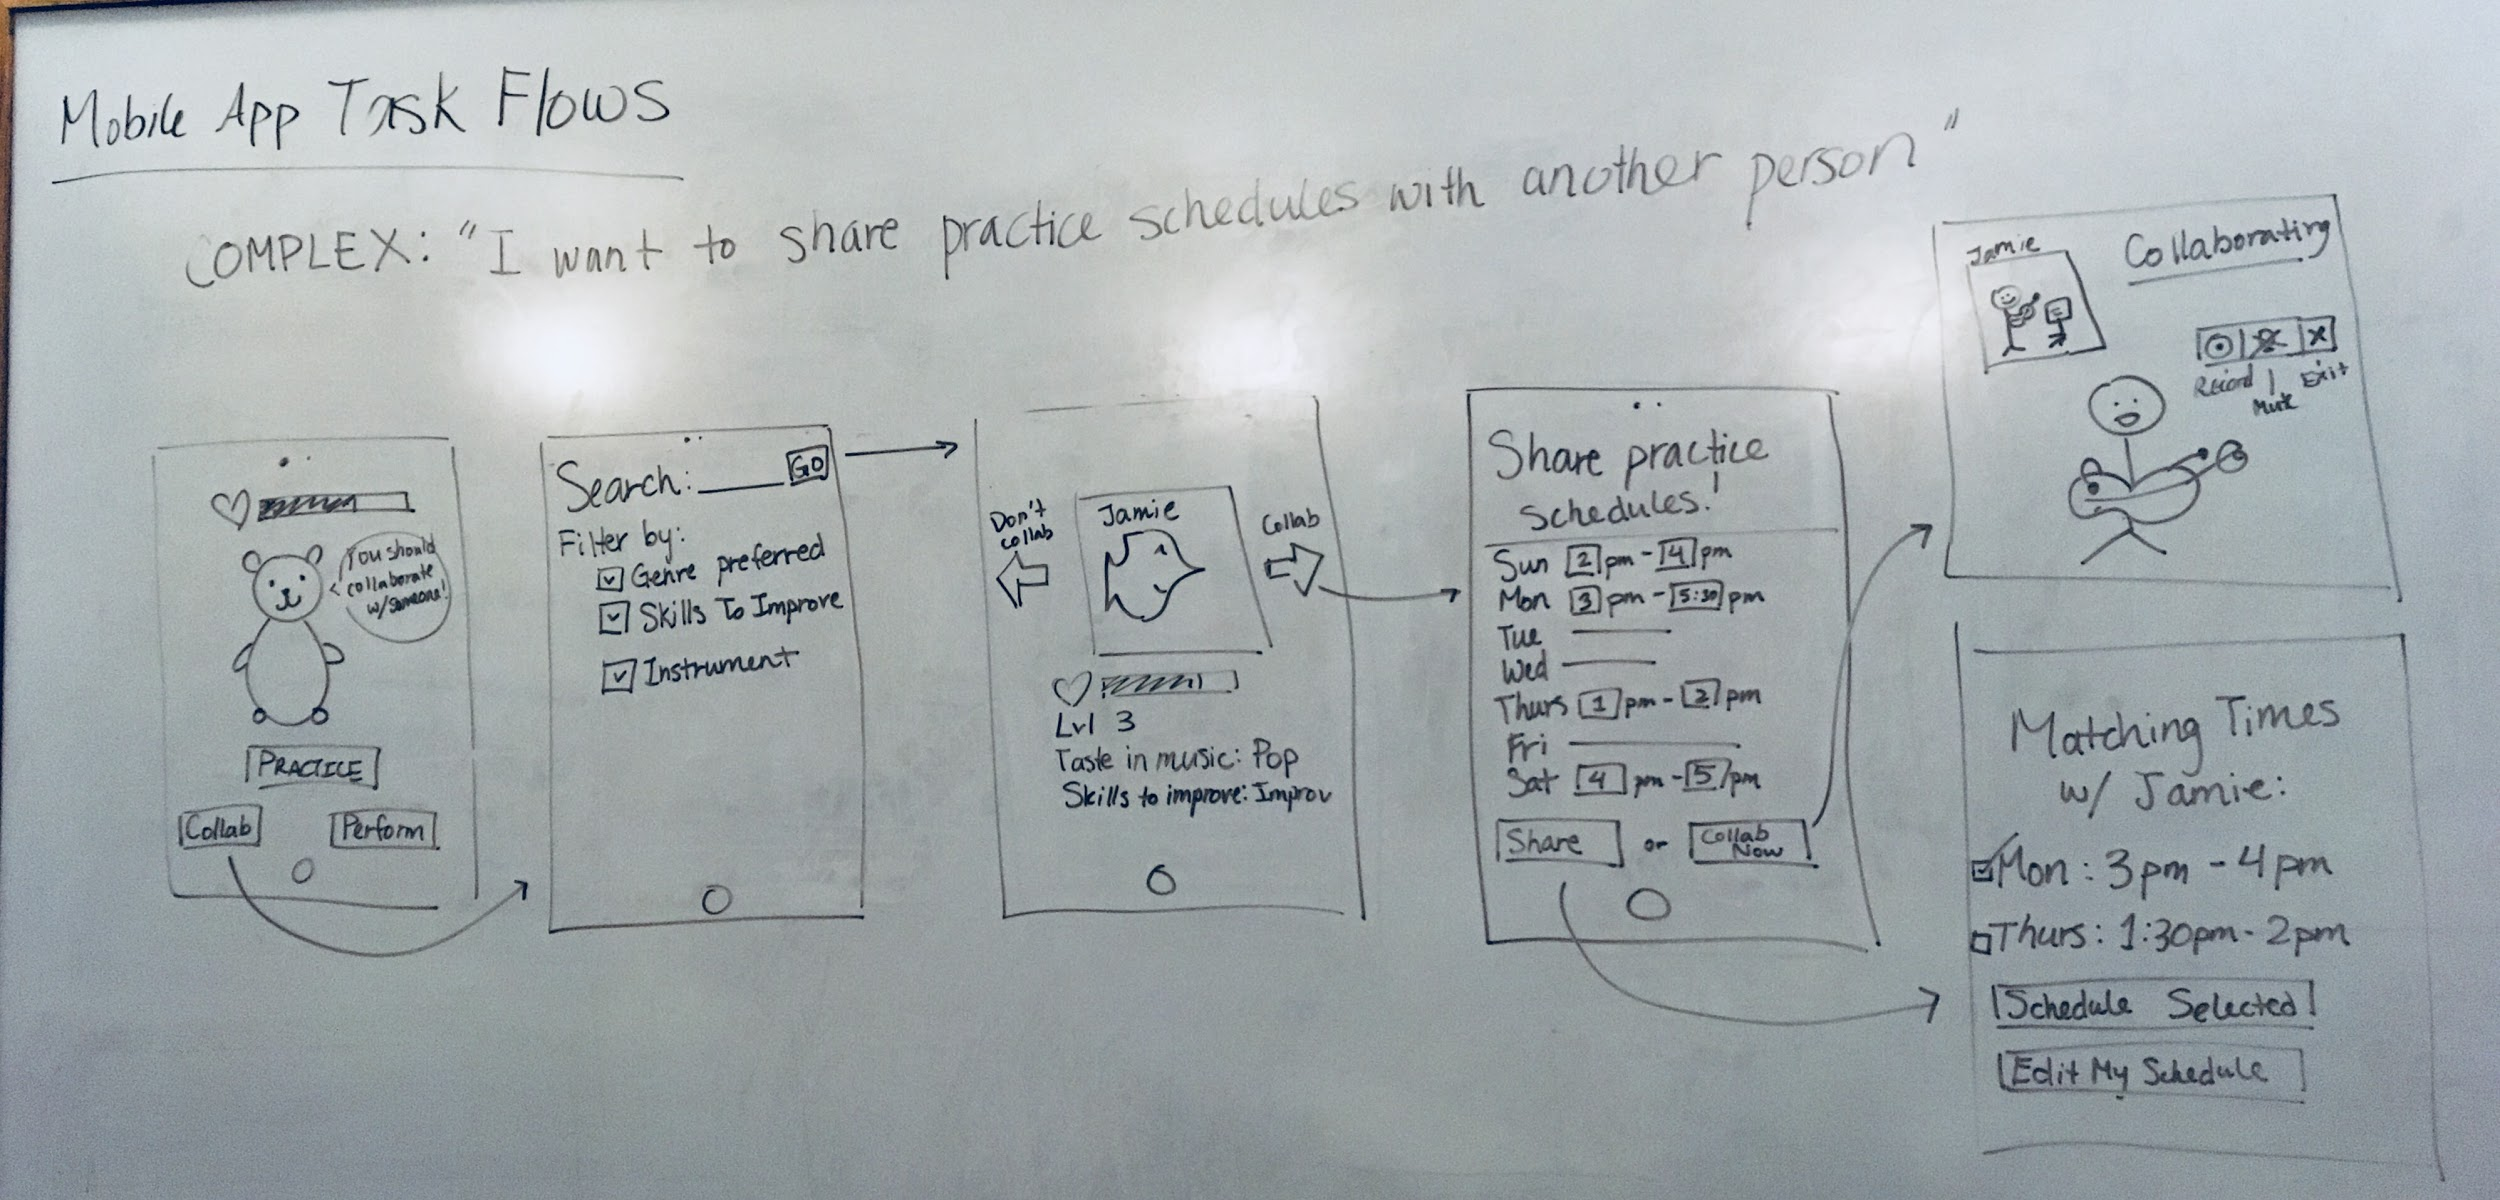 Mobile App Task Flows
COMPLEX: "I want to share practice schedules with another person"
You should
collaborate
w/someone!
PRACTICE
Collab
Perform
Search:
GO
Filter by:
Genre preferred
Skills To Improve
Instrument
Don't
collab
Jamie
Collab
Lvl 3
Taste in music: Pop
Skills to improve: Improv
Share practice
schedules!
Sun 2 pm - 4 pm
Mon 3 pm - 5:30 pm
Tue
Wed
Thurs 1 pm - 2 pm
Fri
Sat 4 pm - 5 pm
Share or Collab
Now
Jamie
Collaborating
Record
Mute
Exit
Matching Times
w/ Jamie:
Mon: 3pm - 4pm
Thurs: 1:30pm - 2pm
Schedule Selected
Edit My Schedule